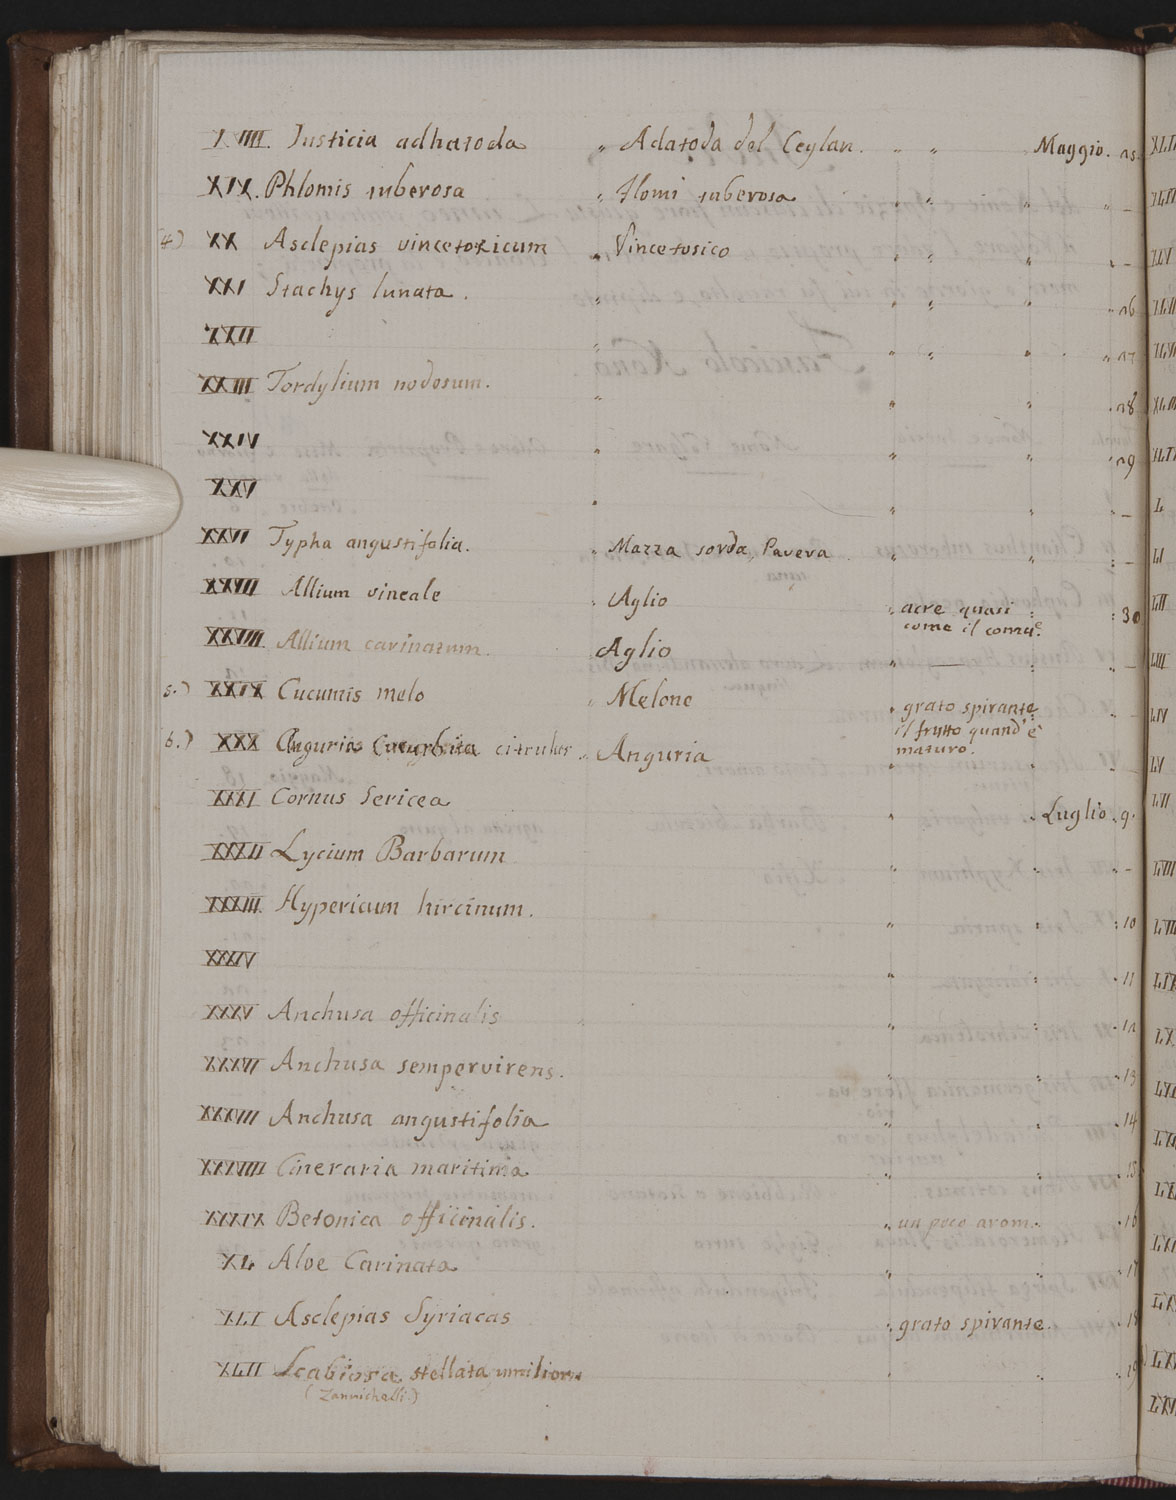 XVIII. Justicia adhatoda " Adatoda del Ceylan. " " Maggio. 25.
XIX. Phlomis tuberosa " Flomi tuberosa " " " " –
4.) XX Asclepias vincetoxicum " Vincetosico " " " –
XXI Stachys lunata. " " " " 26
XXII " " " " " 27
XXIII Tordylium nodosum. " " " 28
XXIV " " " 29
XXV " " " –
XXVI Typha angustifolia. " Mazza sorda, Pavera " " " –
XXVII Allium vineale " Aglio " acre quasi " " 30
come il comue.
XXVIII Allium carinatum. Aglio " — " " –
5.) XXIX Cucumis melo " Melone " grato spirante " –
il frutto quand'è
6.) XXX citrulus " Anguria maturo.
XXXI Cornus Sericea " Luglio. 9.
XXXII Lycium Barbarum " " " –
XXXIII Hypericum hircinum. " " " 10
XXXIV " " " 11
XXXV Anchusa officinalis " " " 12
XXXVI Anchusa sempervirens. " " " 13
XXXVII Anchusa angustifolia " " " 14
XXXVIII Cineraria maritima " " " 15
XXXIX Betonica officinalis. " un poco arom. " 16
XL Aloe Carinata " " " 17
XLI Asclepias Syriacas " grato spirante. " 18
XLII Scabiosa stellata " " " 19
(Zannichelli.)